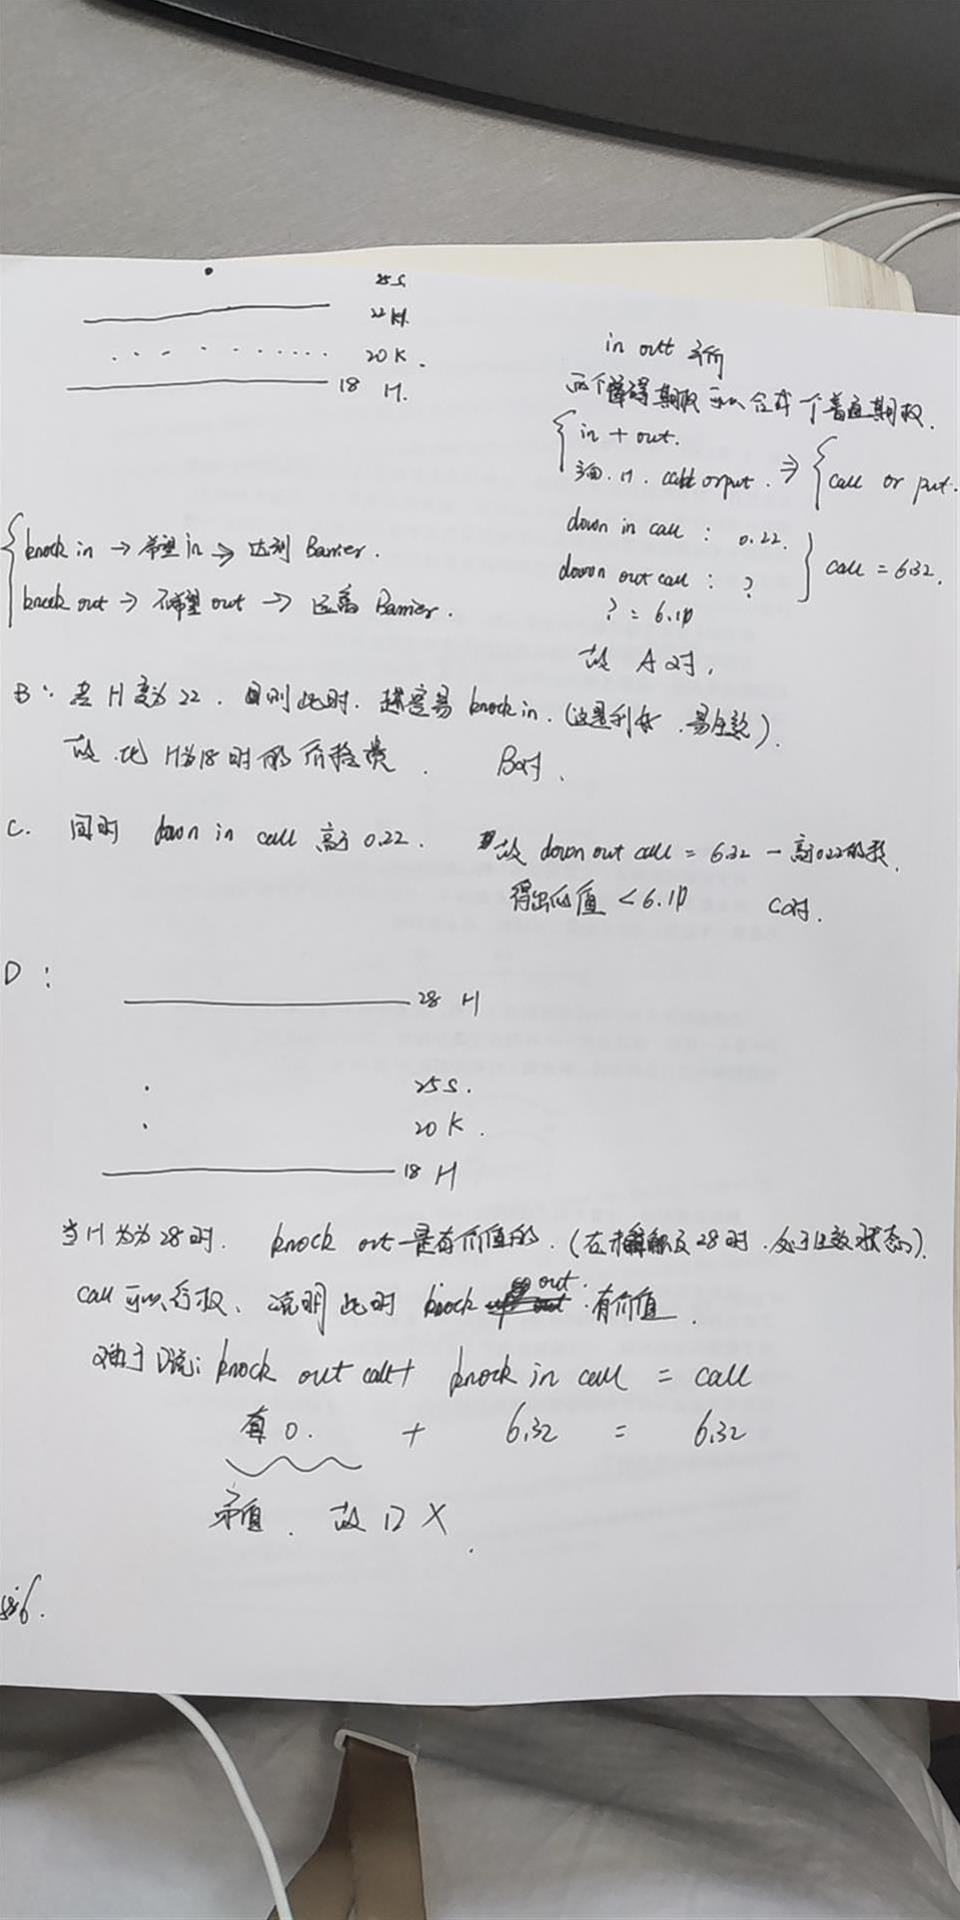 25 S
22 H.
20 K.
18 H.
in out 平价
两个障碍期权可以合成一个普通期权.
in + out.
同. H. call or put. ⇒ { call or put.
down in call : 0.22.
down out call : ? } call = 6.32.
? = 6.10
故 A对,
{ knock in → 希望in → 达到 Barrier.
knock out → 不希望out → 远离 Barrier.
B: 若H变为22. 则此时. 越容易 knock in. (这是利好. 易生效).
故. 比H为18时的价格贵. B对.
C. 同时 down in call 高于0.22. 故 down out call = 6.32 - 高于0.22的数.
得出的值 < 6.10 C对.
D:
28 H
25 S.
20 K.
18 H
当H为28时. knock out 是有价值的. (在未触及28时. 处于生效状态).
call 可以行权、说明此时 knock out. 有价值.
对于D说: knock out call + knock in call = call
有0. + 6.32 = 6.32
矛盾. 故 D X.